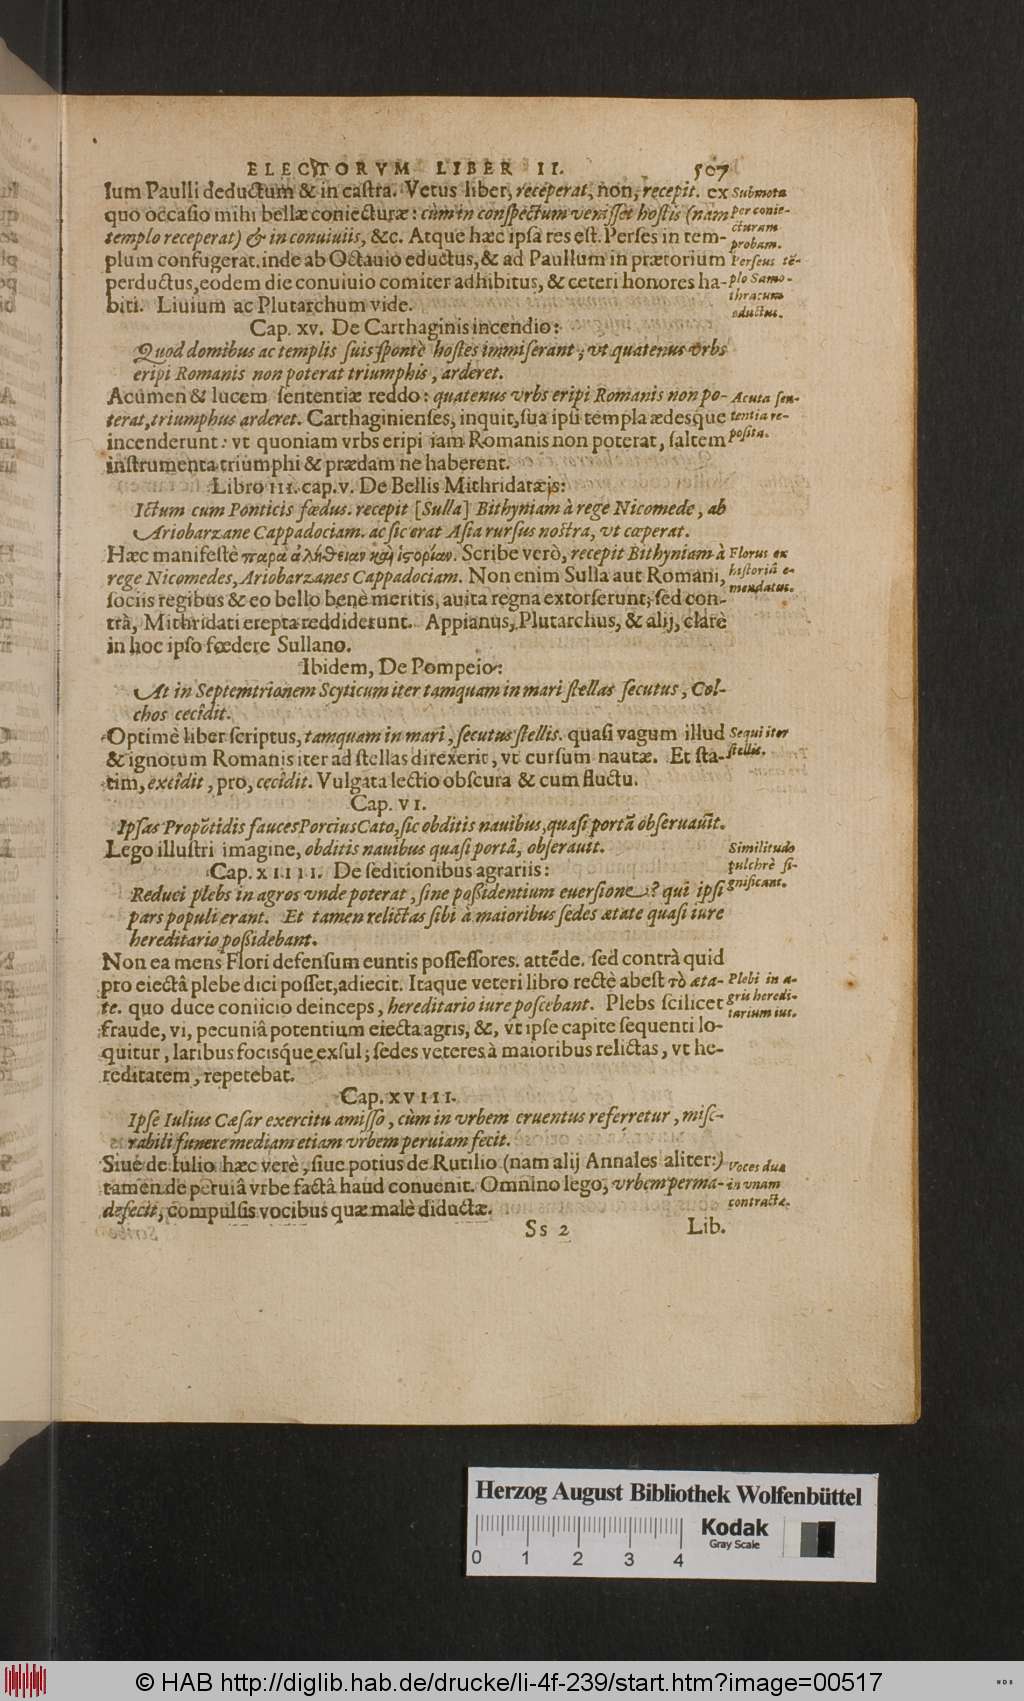 ELECTORVM LIBER II. 507
lum Paulli deductum & in castra. Vetus liber, receperat, non, recepit. ex
quo occasio mihi bellæ coniecturæ: cùm in conspectum venisset hostis (nam
templo receperat) & in conuiuiis, &c. Atque hæc ipsa res est. Perses in tem-
plum confugerat. inde ab Octauio eductus, & ad Paullum in prætorium
perductus, eodem die conuiuio comiter adhibitus, & ceteri honores ha-
biti. Liuium ac Plutarchum vide.
Submota
per conie-
cturam
probam.
Perseus tẽ-
plo Samo-
thracum
eductus.
Cap. xv. De Carthaginis incendio:
Quod domibus ac templis suis spontè hostes immiserant, vt quatenus vrbs
eripi Romanis non poterat triumphis, arderet.
Acumen & lucem sententiæ reddo: quatenus vrbs eripi Romanis non po-
terat, triumphus arderet. Carthaginienses, inquit, sua ipsi templa ædesque
incenderunt: vt quoniam vrbs eripi iam Romanis non poterat, saltem
instrumenta triumphi & prædam ne haberent.
Acuta sen-
tentia re-
posita.
Libro III. cap. v. De Bellis Mithridatæis:
Ictum cum Ponticis fœdus. recepit [Sulla] Bithyniam à rege Nicomede, ab
Ariobarzane Cappadociam. ac sic erat Asia rursus nostra, vt cœperat.
Hæc manifestè παρὰ ἀλήθειαν καὶ ἱστορίαν. Scribe verò, recepit Bithyniam à
rege Nicomedes, Ariobarzanes Cappadociam. Non enim Sulla aut Romani,
sociis regibus & eo bello benè meritis, auita regna extorserunt; sed con-
trà, Mithridati erepta reddiderunt. Appianus, Plutarchus, & alij, clarè
in hoc ipso fœdere Sullano.
Florus ex
historiâ e-
mendatus.
Ibidem, De Pompeio:
At in Septemtrionem Scyticum iter tamquam in mari stellas secutus, Col-
chos cecîdit.
Optimè liber scriptus, tamquam in mari, secutus stellis. quasi vagum illud
& ignotum Romanis iter ad stellas direxerit, vt cursum nautæ. Et sta-
tim, exeîdit, pro, cecîdit. Vulgata lectio obscura & cum fluctu.
Sequi iter
stellis.
Cap. VI.
Ipsas Propõtidis fauces Porcius Cato, sic obditis nauibus, quasi portã obseruauĩt.
Lego illustri imagine, obditis nauibus quasi portâ, obserauit.
Similitudo
pulchrè si-
gnificant.
Cap. XIIII. De seditionibus agrariis:
Reduci plebs in agros vnde poterat, sine possidentium euersione? qui ipsi
pars populi erant. Et tamen relictas sibi à maioribus sedes ætate quasi iure
hereditario possidebant.
Non ea mens Flori defensum euntis possessores. attẽde. sed contrà quid
pro eiectâ plebe dici posset, adiecit. Itaque veteri libro rectè abest τὸ æta-
te. quo duce coniicio deinceps, hereditario iure poscebant. Plebs scilicet
fraude, vi, pecuniâ potentium eiecta agris, &, vt ipse capite sequenti lo-
quitur, laribus focisq́ue exsul; sedes veteres à maioribus relictas, vt he-
reditatem, repetebat.
Plebi in a-
gris heredi-
tarium ius.
Cap. XVIII.
Ipse Iulius Cæsar exercitu amisso, cùm in vrbem cruentus referretur, mise-
rabili funere mediam etiam vrbem peruiam fecit.
Siue de Iulio hæc verè, siue potius de Rutilio (nam alij Annales aliter:)
tamen de peruiâ vrbe factâ haud conuenit. Omnino lego, vrbem perma-
defecit, compulsis vocibus quæ malè diductæ.
Voces duæ
in vnam
contractæ.
Ss 2 Lib.
Herzog August Bibliothek Wolfenbüttel
0 1 2 3 4
Kodak
Gray Scale
© HAB http://diglib.hab.de/drucke/li-4f-239/start.htm?image=00517